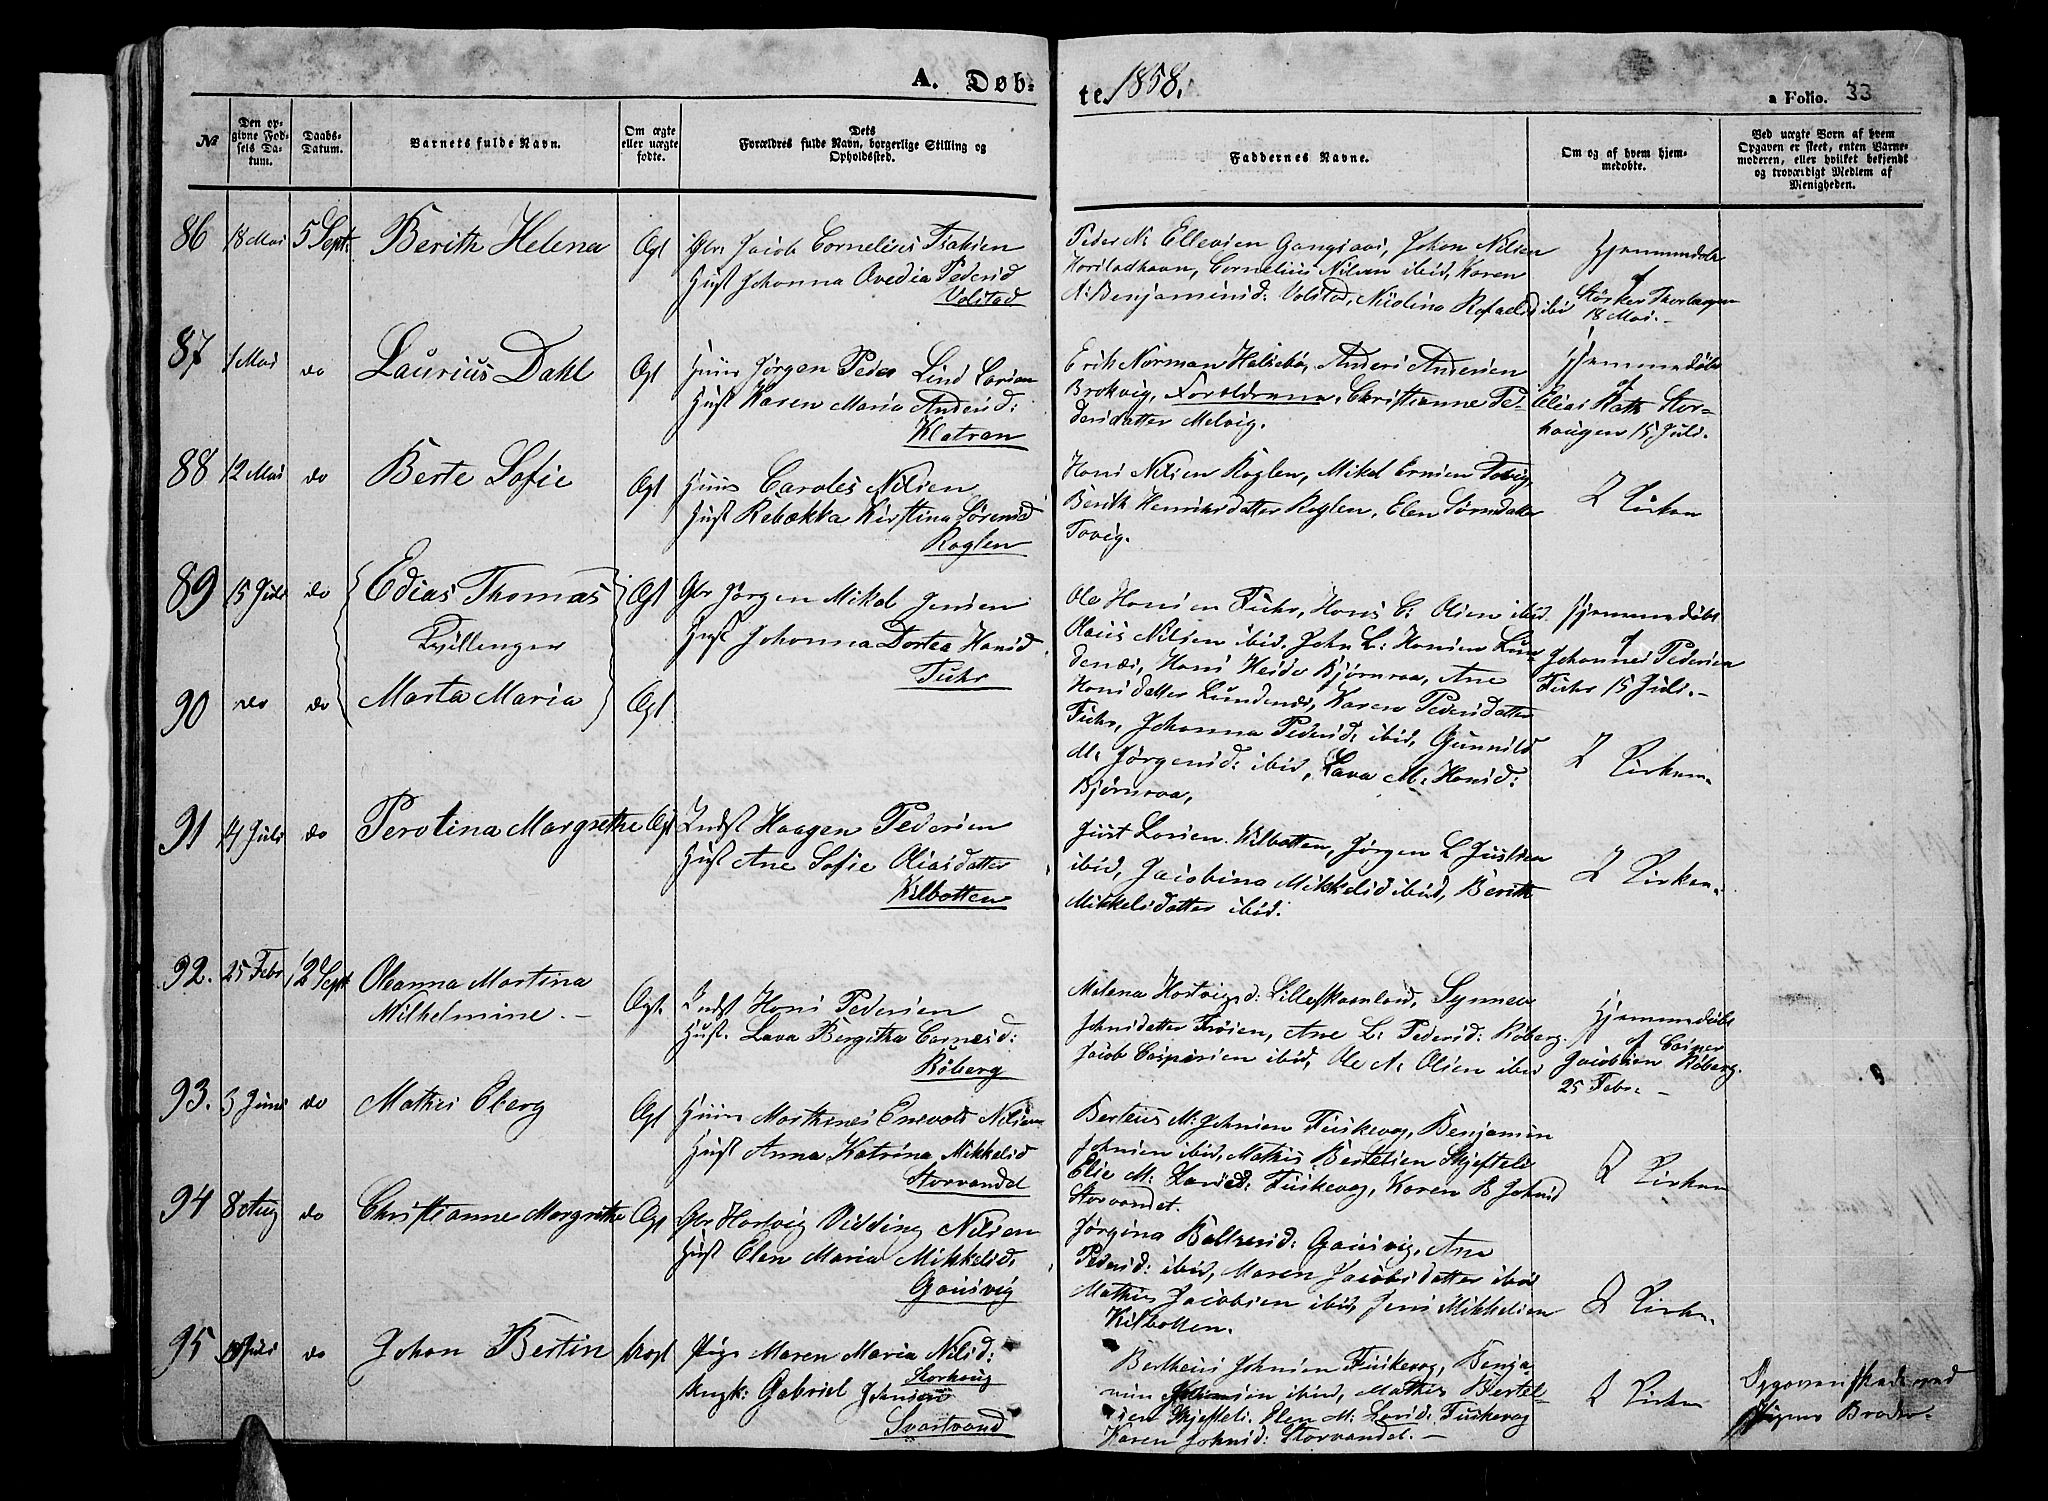 A. Døb-
te. 1858.
a Folio. 33
№
Den op-
givne Fød-
sels Da-
tum.
Daabs-
Datum.
Barnets fulde Navn.
Om ægte
eller uægte
fødte.
Dets
Forældres fulde Navn, borgerlige Stilling og
Opholdssted.
Faddernes Navne.
Om og af hvem hjem-
medøbte.
Ved uægte Børn af hvem
Opgaven er skeet, enten Barne-
moderen, eller hvilket bekjendt
og troværdigt Medlem af
Menigheden.
86 18 Mai 5 Sept. Berith Helena Ægt Gbr. Jacob Cornelius Isaksen
Hust Johanna Ovedia Pedersd
Volstad
Peder N: Ellevsen Gangsaas, Johan Nilsen
Cornelius Nilsen ibid, Karen
N: Benjaminsd: Volstad, Nicolina Rafaelsd ibid
Hjemmedøbt
af
18 Mai.-
87 1 Mai do Laurius Dahl Ægt Huus Jørgen Peder Lind Larsen
Hust Karen Maria Andersd:
Klatran
Erik Norman Halsebø, Anders Andersen
Brokvig, Forældrene, Christianne Pe-
dersdatter Melvig.
Hjemmedøbt
af
Elias Rath Stor-
haugen 15 Juli.
88 12 Mai do Berte Sofie Ægt Huus Caroles Nilsen
Hust Rebækka Kirstina Sørensd
Roglen
Hans Nilsen Roglen, Mikal Ernsen Tovig,
Berith Henriksdatter Roglen, Elen Sørensdatter
Tovig.
I Kirken
89 15 Juli do Edias Thomas Ægt Gbr Jørgen Mikal Jensen
Tvillinger
Hust Johanna Dortea Hansd
Fuhr
Ole Hansen Fuhr, Hans C: Olsen ibid.
Olaus Nilsen ibid. John L: Hansen Lun-
denæs, Hans Heide Bjørnraa, Ane
Hansdatter Lundenæs, Karen Pedersdatter
Fuhr, Johanna Pedersd: ibid, Gunnild
M: Jørgensd: ibid, Lava M: Hansd:
Bjørnraa,
Hjemmedøbt
af
Johannes Pedersen
Fuhr 15 Juli.-
90 do do Marta Maria Ægt
I Kirken
91 14 Juli do Perotina Margrethe Ægt Indst Haagen Pedersen
Hust Ane Sofie Oliasdatter
Kilbotten
Just Larsen Kilbotten, Jørgen L Justsen
ibid, Jacobina Mikkelsd ibid, Berith
Mikkelsdatter ibid.
I Kirken.
92. 25 Febr 12 Sept Oleanna Martina
Wilhelmine.- Ægt. Indst Hans Pedersen
Hust. Lava Bergitha Cornesd:
Røberg
Milena Hartvigsd: Lilleskamland, Synneve
Johnsdatter Trøsen, Ane L: Pedersd: Røberg.
Jacob Caspersen ibid, Ole A: Olsen ibid
Hjemmedøbt
af Casper
Jacobsen Røberg.
25 Febr.-
93. 3 Juni do Mathis Eberg Ægt Huus Marthines Enevold Nilsen
Hust Anna Katrina Mikkelsd
Storvandet
Berteus M: Johnsen Fiskevog, Benjamin
Johnsen ibid, Mathis Bertelsen Skjeftele
Elie M: Larsd: Fiskevog, Karen B Johnsd
Storvandet.
I Kirken
94 8 Aug do Christianne Margrethe Ægt Gbr Hartvig Vidding Nilsen
Hust Elen Maria Mikkelsd.
Gausvig
Jørgina Baltsersd: Gausvig, Ane
Pedersd: ibid, Maren Jacobsdatter ibid
Mathis Jacobsen ibid, Jens Mikkelsen
Kilbotten.
I Kirken.
95 Juli do Johan Bertin Uægt Pige Maren Maria Nilsd:
Storhaug
Ungk: Gabriel Johnsen
Svartvand
Bertheus Johnsen Fiskevog, Benja-
min Johnsen ibid, Mathis Bertel-
sen Skjeftele. Elen M: Larsd: Fiskevog
Karen Johnsd: Storvandet.-
I Kirken
Opgaven skede ved
Pigens Broder.